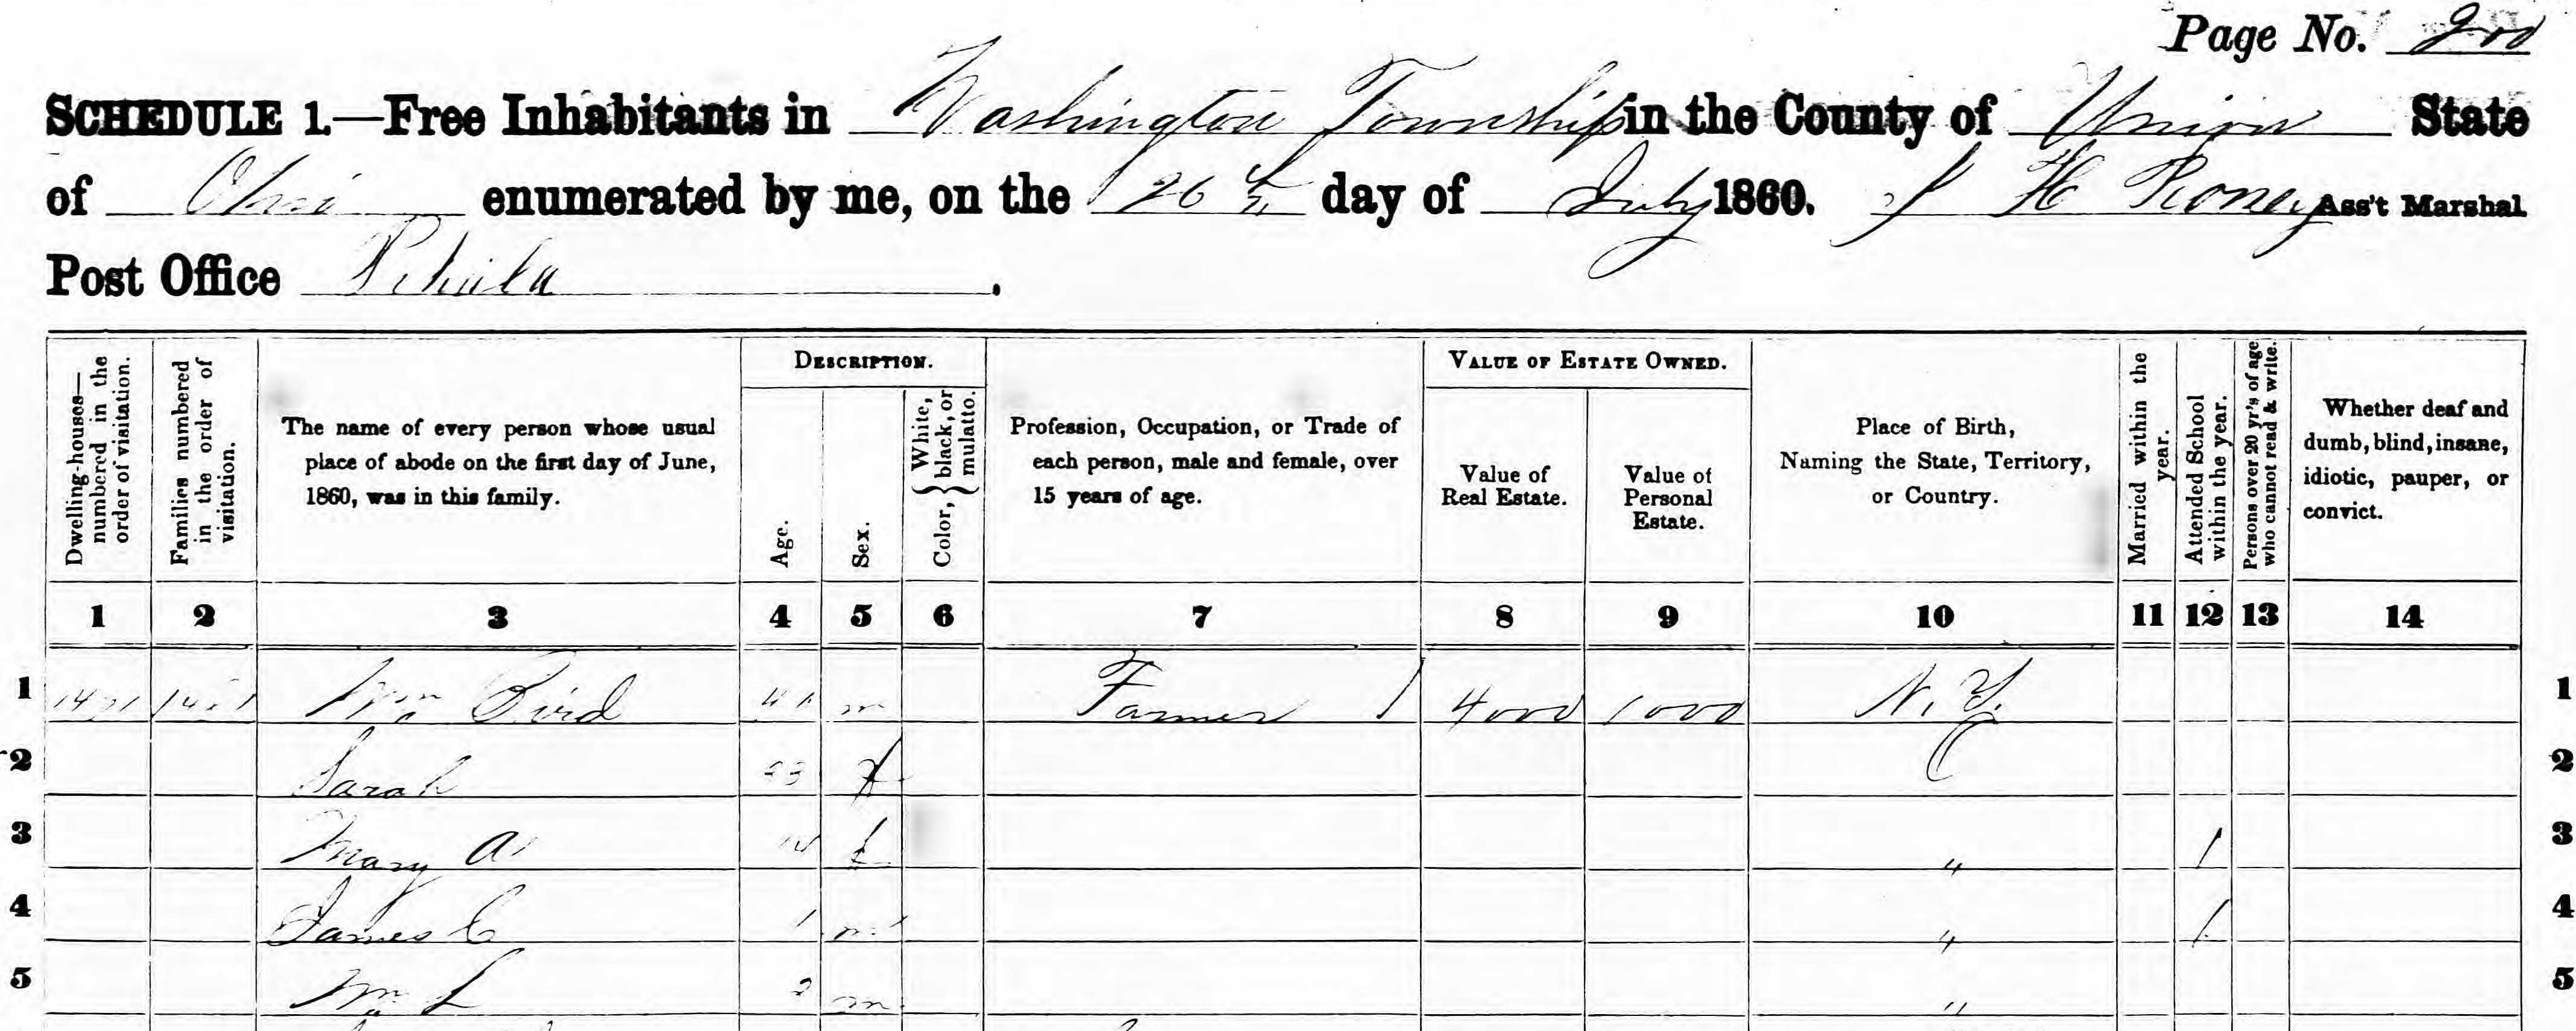 Page No. 200
SCHEDULE 1.—Free Inhabitants in Washington Township in the County of Union State
of Ohio enumerated by me, on the 26th day of July 1860. J H Roney Ass't Marshal
Post Office
Dwelling-houses—numbered in the order of visitation.
Families numbered in the order of visitation.
The name of every person whose usual place of abode on the first day of June, 1860, was in this family.
DESCRIPTION.
Age.
Sex.
Color, { White, black, or mulatto.
Profession, Occupation, or Trade of each person, male and female, over 15 years of age.
VALUE OF ESTATE OWNED.
Value of Real Estate.
Value of Personal Estate.
Place of Birth, Naming the State, Territory, or Country.
Married within the year.
Attended School within the year.
Persons over 20 yr's of age who cannot read & write.
Whether deaf and dumb, blind, insane, idiotic, pauper, or convict.
1 2 3 4 5 6 7 8 9 10 11 12 13 14
1 Wm Bird 41 m Farmer 4000 1000 N. Y. 1
2 Sarah f 2
3 Mary A 14 f " / 3
4 James C m " / 4
5 Wm L 2 m " 5